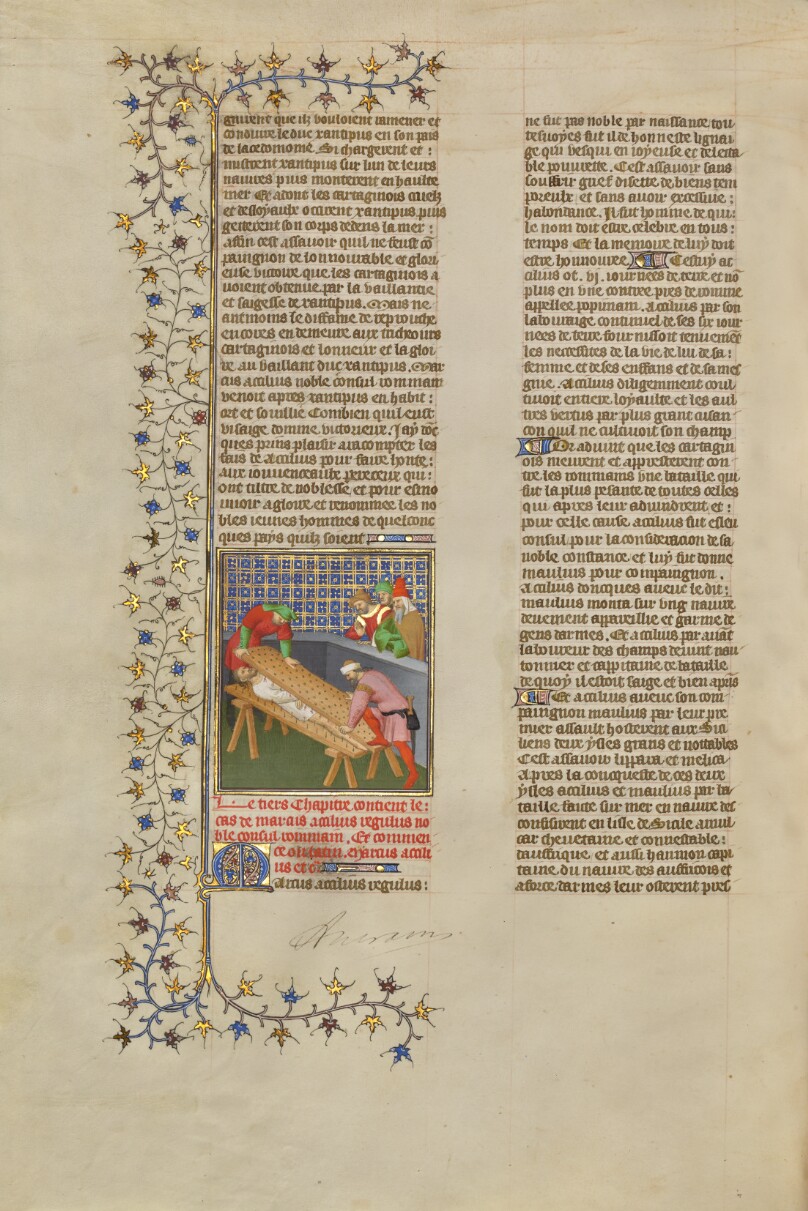 givent que ilz vouloient ramener et
conduire le duc xantipus en son pais
de lacedomone. Si chargerent et :
mistrent xantipus sur lun de leurs
navires puis monterent en haulte
mer Et adont les cartaginois cruelz
et desloyaulx occirent xantipus puis
getterent son corps dedens la mer :
affin cest assavoir quil ne feust cō
paingnon de lonnourable et glori
euse victoire que les cartaginois a
voient obtenue par la vaillantie
et saigesse de xantipus. Mais ne
antmoins le diffame de reprouche
encores en demeure aux tricheurs
cartaginois et lonneur et la gloi
re au vaillant duc xantipus. Mar
cus actilius noble consul rommain
venoit apres xantipus en habit :
ort et soullie Combien quil eust
visaige domme victorieux. Jay dōc
ques prins plaisir a racompter les
fais de actilius pour faire honte :
aux jouvenceaulx pereceux qui :
ont tiltre de noblesse et pour esmo
uvoir a gloire et renommee les no
bles jeunes hommes de quelconc
ques pays quilz soient
Le tiers Chapitre contient le :
cas de marcus actilius regulus no
ble consul rommain. Et commen
ce ou latin. Marcus actili
us et cͤ
Marcus actilius regulus :
ne fut pas noble par naissance tou
tesvoyes fut il de honneste lignai
ge qui vesqui en joyeuse et delecta
ble povrette. Cest assavoir sans
souffrir grief disette de biens tem
poreulx et sans avoir excessive :
habondance. Il fut homme de qui :
le nom doit estre celebre en tous :
temps Et la memoire de luy doit
estre honnouree Cestuy ac
tilius ot .vj. journees de terre et nō
plus en une contree pres de romme
appellee popinam. Actilius par son
labouraige continuel de ses six jour
nees de terre fournissoit tenuement
les necessites de la vie de lui de sa :
femme et de ses enffans et de sa mes
gnie. Actilius diligemment coul
tivoit entiere loyaulte et les aul
tres vertus par plus grant cusan
con quil ne cultivoit son champ
Or advint que les cartagin
ois meurent et appresterent con
tre les rommains une bataille qui
fut la plus pesante de toutes celles
qui apres leur advindrent et :
pour celle cause actilius fut esleu
consul pour la consideracion de sa
noble constance et luy fut donne
manlius pour compaingnon.
Actilius doncques avecc le dit :
manlius monta sur ung navire
deuement appareillie et garnie de
gens darmes. Et actilius par avāt
laboureur des champs devint nau
tonnier et cappitaine de bataille
de quoy il estoit saige et bien apris
Et actilius avecc son com
paingnon manlius par leur pre
mier assault hosterent aux Sici
liens deux ysles grans et nottables
Cest assavoir lippara et melica
Apres la concqueste de ces deux
ysles actilius et manlius par ba
taille faicte sur mer en navire des
confisirent en lisle de Sicile amul
car chevetaine et connestable :
dauffrique et aussi hannon capi
taine du navire des auffricois et
a force darmes leur osterent pres